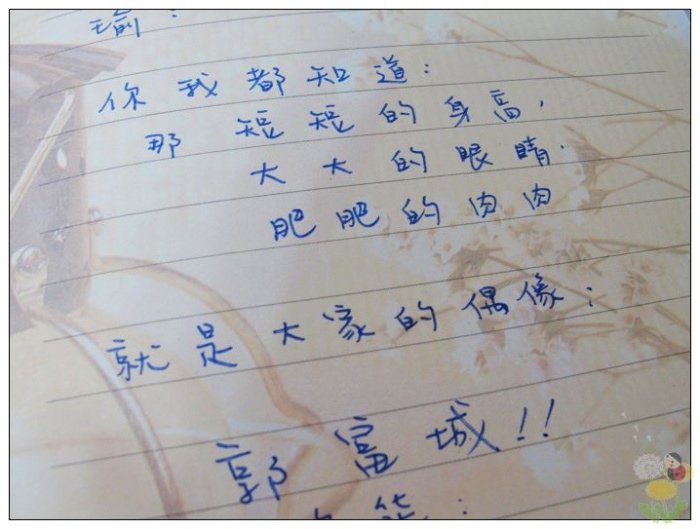 瑜：
你我都知道：
那 短短的身高，
大大的眼睛，
肥肥的肉肉
就是大家的偶像：
郭富城!!